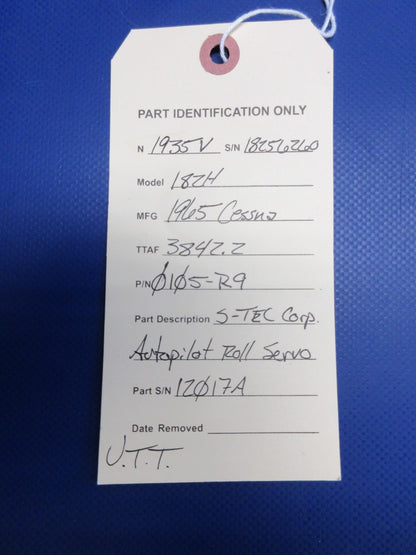 PART IDENTIFICATION ONLY
N 1935V S/N 18256260
Model 182H
MFG 1965 Cessna
TTAF 3842.2
P/N 0105-R9
Part Description S-TEC Corp.
Autopilot Roll Servo
Part S/N 12017A
Date Removed
U.T.T.